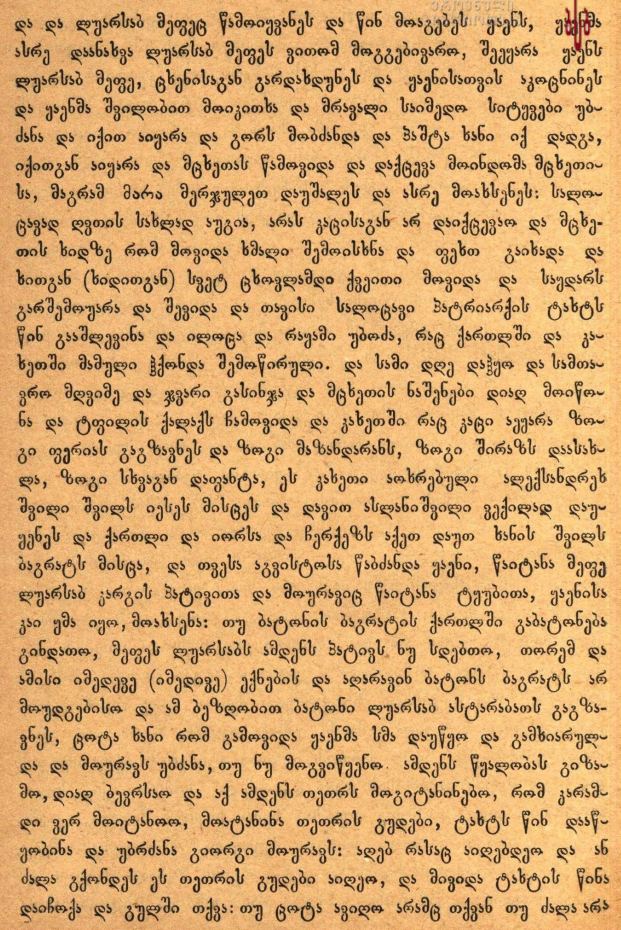 და და ლუარსაბ მეფეც წამოიყვანეს და წინ მოაგებეს ყაენს, ყაენმა
ასრე დაანახვა ლუარსაბ მეფეს ვითომ მოგგებივარო, შეეყარა ყაენს
ლუარსაბ მეფე, ცხენისაგან გარდახდუნეს და ყაენისათვის აკოცნინეს
და ყაენმა შვილობით მოიკითხა და მრავალი საიმედო სიტყვები უბ-
ძანა და იქით აიყარა და გორს მობძანდა და პაშტა ხანი იქ დადგა,
იქითგან აიყარა და მცხეთას წამოვიდა და დაქცევა მოინდომა მცხეთი-
სა, მაგრამ მარა მერჯულეთ დაუშალეს და ასრე მოახსენეს: სალო-
ცავად ღვთის სახლად აუგია, არას კაცისაგან არ დაიქცევაო და მცხე-
თის ხიდზე რომ მოვიდა ხმალი შემოისხნა და ფეხთ გაიხადა და
ხითგან (ხიდითგან) სვეტ ცხოვლამდი ქვეითი მოვიდა და საყდარს
გარშემოუარა და შევიდა და თავისი სალოცავი პატრიარქის ტახტს
წინ გააშლევინა და ილოცა და რაყამი უბოძა, რაც ქართლში და კა-
ხეთში მამული ჰქონდა შემოწირული. და სამი დღე დაჰყო და სამთა-
ვრო მღვიმე და ჯვარი გასინჯა და მცხეთის ნაშენები დიაღ მოიწო-
ნა და ტფილის ქალაქს ჩამოვიდა და კახეთში რაც კაცი აეყარა ზო-
გი ფერიას გაგზავნეს და ზოგი მაზანდარანს, ზოგი შირაზს დაასახ-
ლა, ზოგი სხვაგან დაფანტა, ეს კახეთი აოხრებული ალექსანდრეს
შვილი შვილს იესეს მისცეს და დავით ასლანიშვილი ვექილად დაუ-
ყენეს და ქართლი და იორსა და ჩერქეზს აქეთ დაუთ ხანის შვილს
ბაგრატს მისცა, და თვესა აგვისტოსა წაბძანდა ყაენი, წაიტანა მეფე
ლუარსაბ კარგის პატივითა და მოურავიც წაიტანა ტყუბითა, ყაენისა
კაი ყმა იყო, მოახსენა: თუ ბატონის ბაგრატის ქართლში გაბატონება
გინდათო, მეფეს ლუარსაბს ამდენს პატივს ნუ სდებთო, თორემ და
ამისი იმედევე (იმედივე) ექნების და აღარავინ ბატონს ბაგრატს არ
მოუდგებისო და ამ ბეზღობით ბატონი ლუარსაბ ასტარაბათს გაგზა-
ვნეს, ცოტა ხანი რომ გამოვიდა ყაენმა სმა დაუწყო და გამხიარულ-
და და მოურავს უბძანა, თუ ნუ მოგვიწყენო. ამდენს წყალობას გიზა-
მო, დიაღ ბევრსაო და აქ ამდენს თეთრს მოგიტანინებო, რომ კარამ-
დი ვერ მოიტანოო, მოატანინა თეთრის გუდები, ტახტს წინ დააწ-
ყობინა და უბრძანა გიორგი მოურავს: აღებ რასაც აიღებდეო და ან
ძალა გქონდეს ეს თეთრის გუდები აიღეო, და მივიდა ტახტის წინა
დაიჩოქა და გულში თქვა: თუ ცოტა ავიღო არამც თქვან თუ ძალა არა